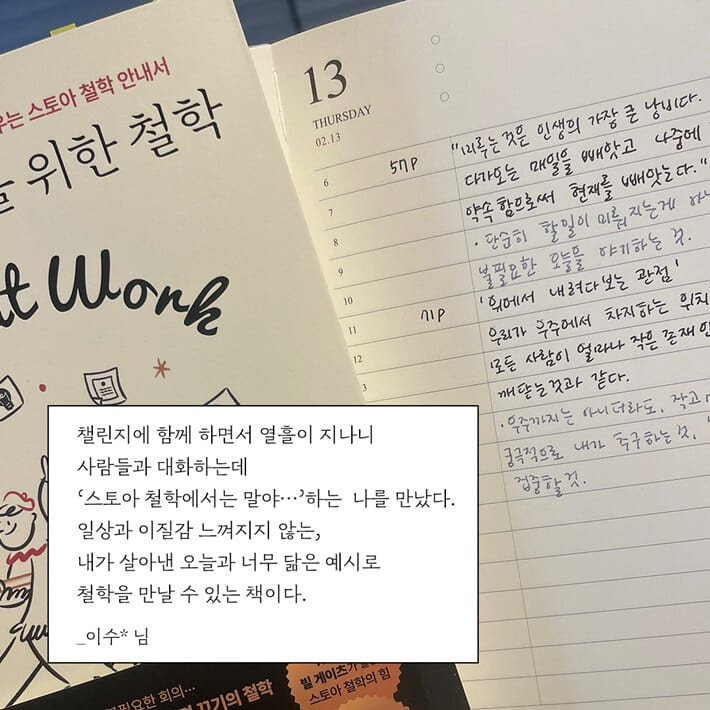 스토아 철학 안내서
위한 철학
at Work
13
THURSDAY
02.13
6
7
8
9
10
11
12
3
57P
"미루는것은 인생의 가장 큰 낭비다.
다가오는 매일을 빼앗고 나중에
약속함으로써 현재를 빼앗는다."
· 단순히 할일이 미뤄지는게 아니
불필요한 오늘을 야기하는 것.
71P
'위에서 내려다보는 관점'
우리가 우주에서 차지하는 위치
모든 사람이 얼마나 작은 존재인
깨닫는것과 같다.
· 우주까지는 아니더라도, 작고
궁극적으로 내가 추구하는것,
집중할것.
챌린지에 함께 하면서 열흘이 지나니
사람들과 대화하는데
‘스토아 철학에서는 말야…’하는 나를 만났다.
일상과 이질감 느껴지지 않는,
내가 살아낸 오늘과 너무 닮은 예시로
철학을 만날 수 있는 책이다.
_이수* 님
회의…
끄기의 철학
빌 게이츠가
스토아 철학의 힘